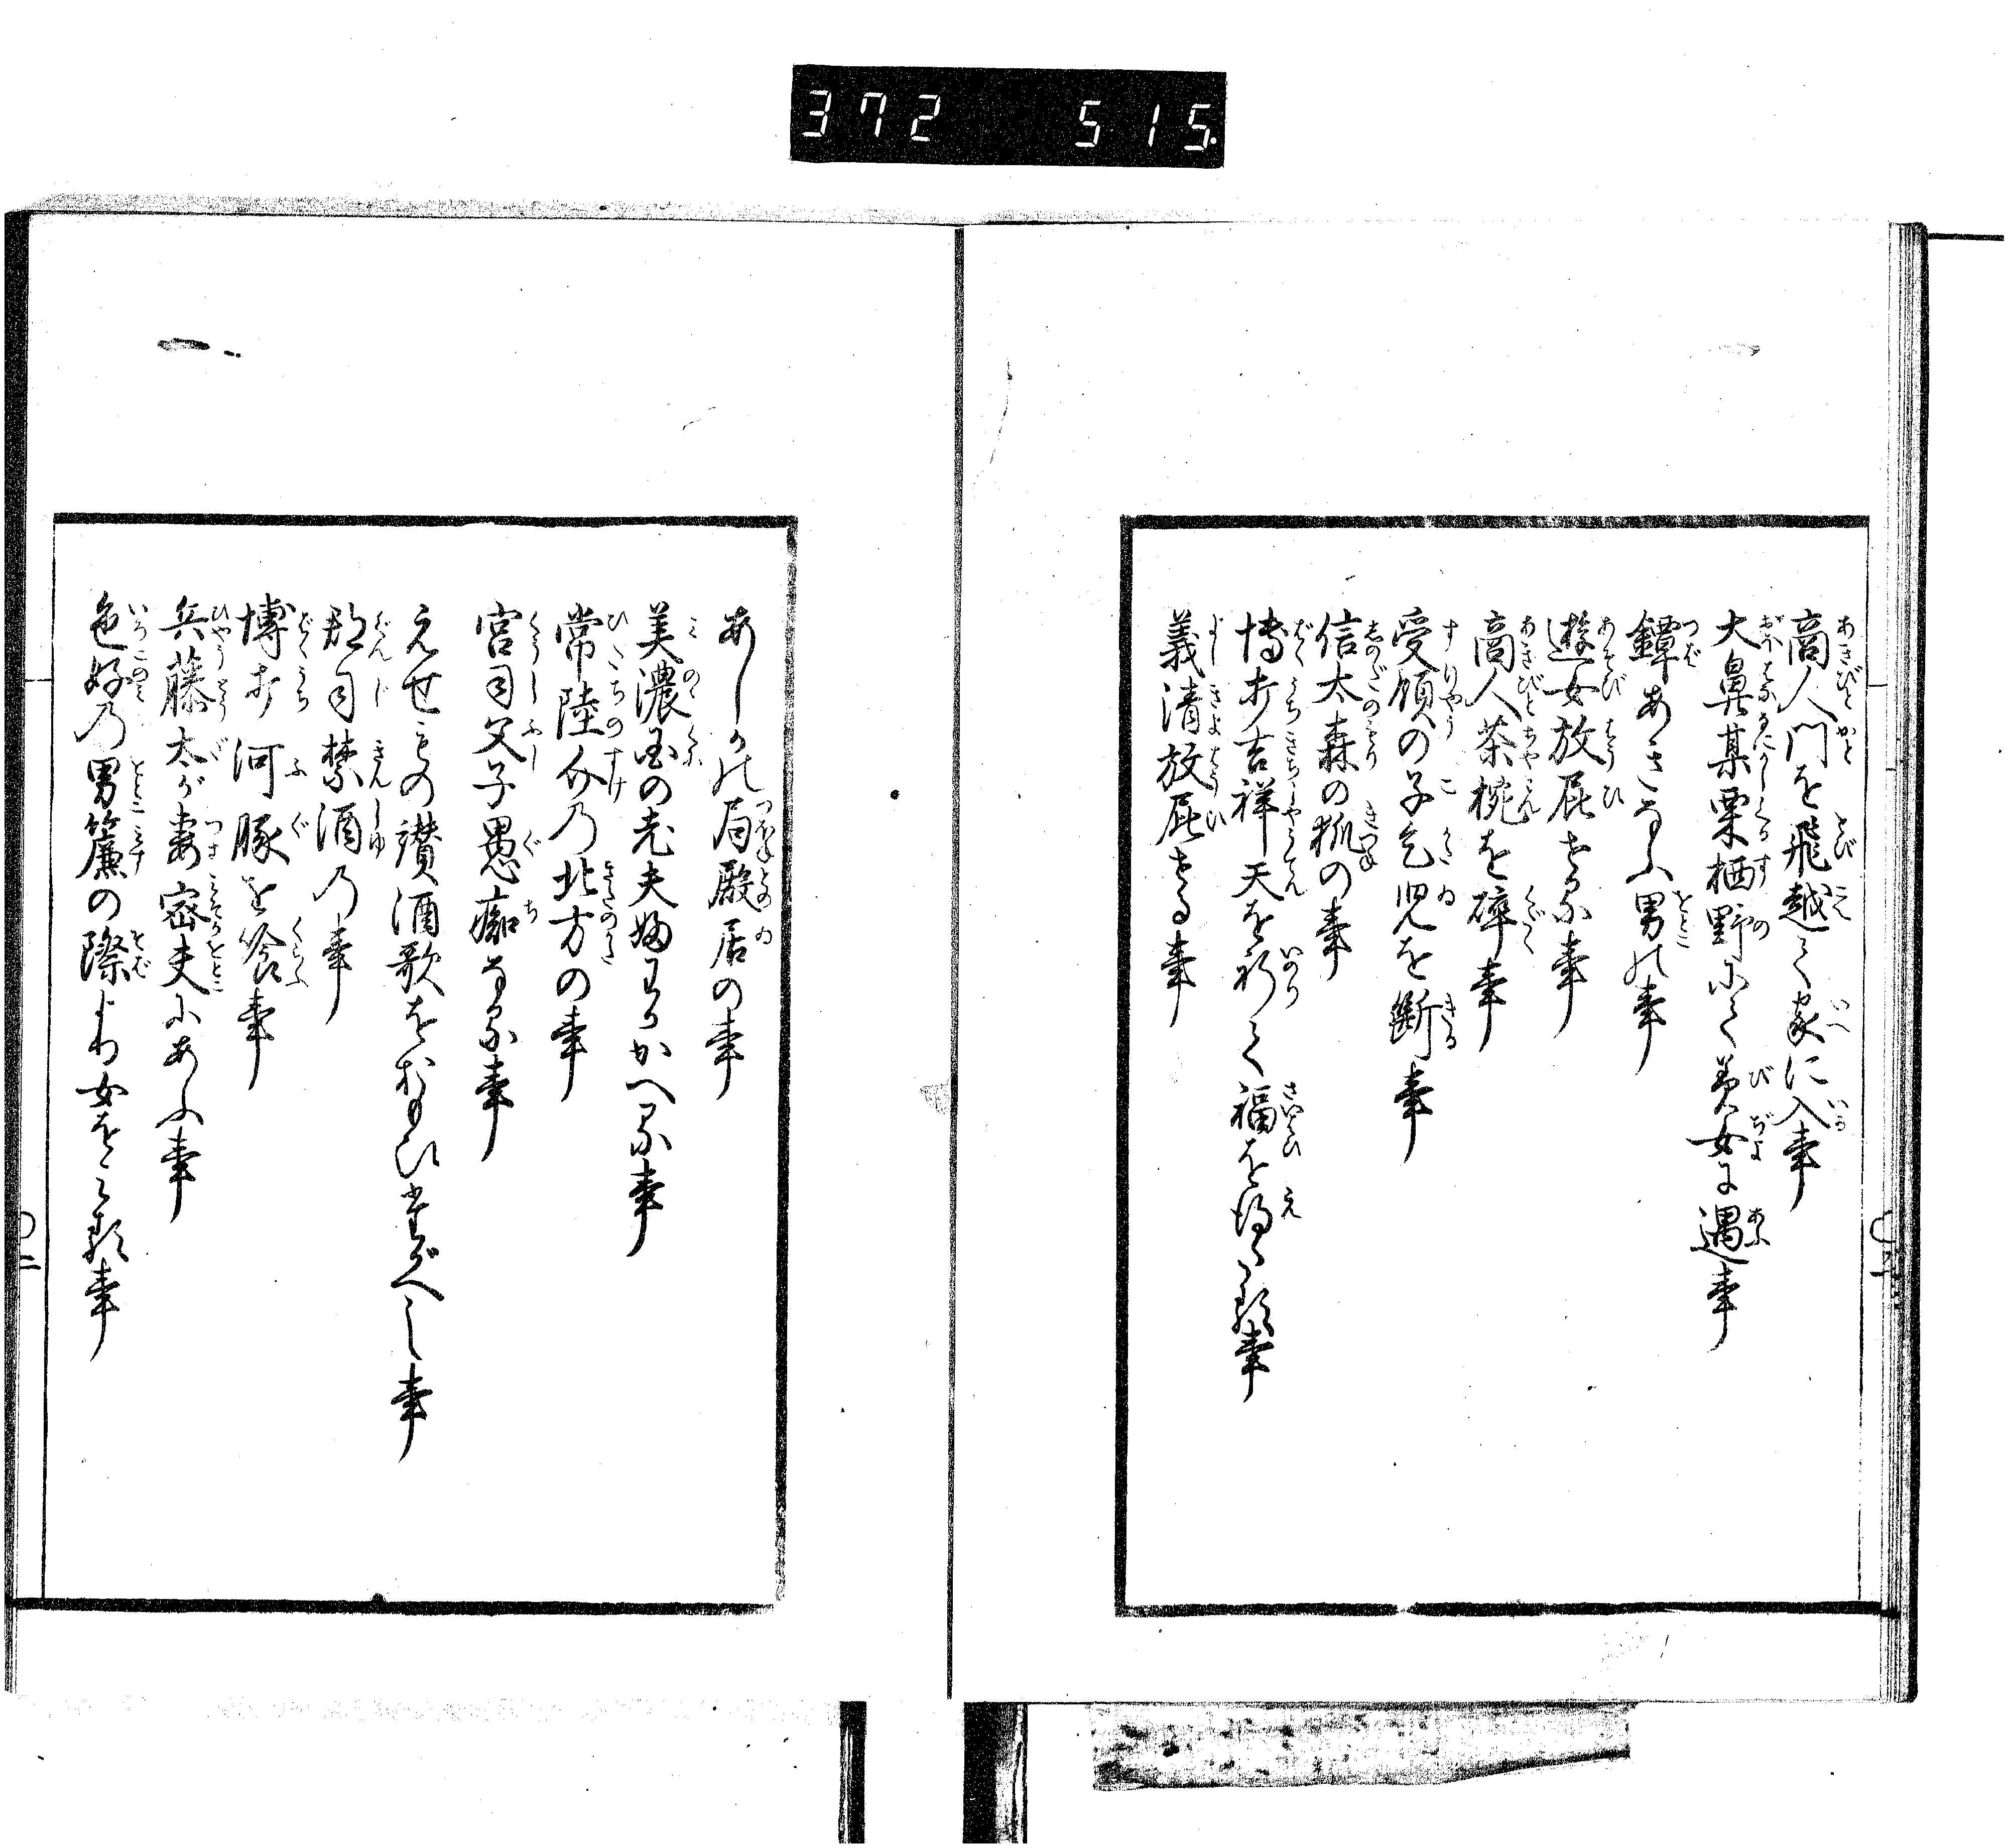 372 515
商人門を飛越て家に入事
大鼻某栗栖野にて美女に遇事
鐔あきなふ男の事
遊女放屁する事
商人茶椀を碎事
受領の子乞児を断事
信太森の狐の事
博打吉祥天を祈て福を得る事
義清放屁する事
あしかの局殿居の事
美濃国の老夫婦わかがへる事
常陸介の北方の事
宮司父子愚癡なる事
えせもの讃酒歌をおもひたがへし事
郡司禁酒の事
博打河豚を飡事
兵藤太が妻密夫にあふ事
色好の男簾の際より女をみる事